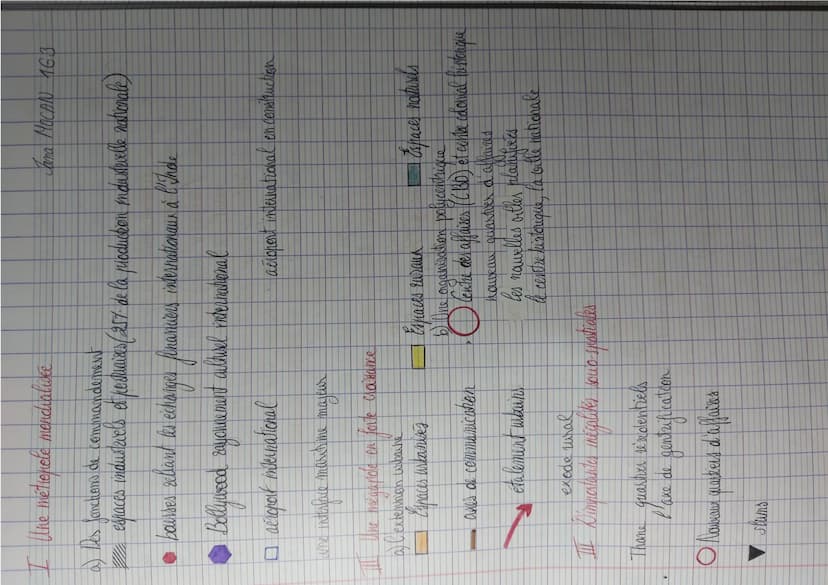 Jana MOCAN 1G3
I Une métropole mondialisée
a) Des fonctions de commandement
espaces industriels et portuaires (25% de la production industrielle nationale)
bourses reliant les échanges financiers internationaux à l'Inde
Bollywood rayonnement culturel international
aéroport international aéroport international en construction
une interface maritime majeur
III Une mégapole en forte croissance
a) L'extension urbaine
Espaces urbanisés Espaces ruraux Espaces naturels
axes de communication
étalement urbain
exode rural
b) Une organisation polycentrique
Centre des affaires (CBD) et centre colonial historique
nouveau quartier d'affaires
les nouvelles villes planifiées
le centre historique, la ville nationale
III D'importantes inégalités socio-spatiales
Thane quartier résidentiels
l'axe de gentrification
Nouveau quartiers d'affaires
slums